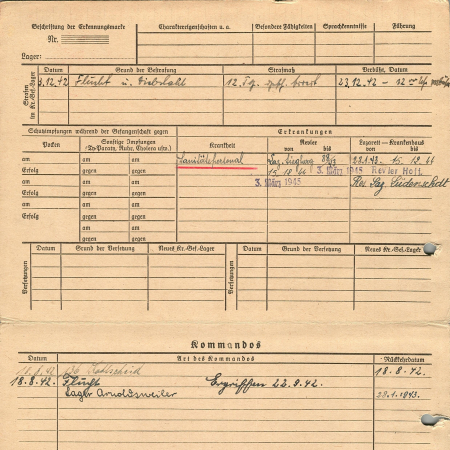 Beschriftung der Erkennungsmarke
Nr.
Lager:
Charaktereigenschaften u. a.
Besondere Fähigkeiten
Sprachkenntnisse
Führung
Strafen im Kr.-Gef.-Lager
Datum
Grund der Bestrafung
Strafmaß
Verbüßt, Datum
3.12.42
Flucht u. Diebstahl
12 Tg. gesch. Arrest
23.12.42 - 12 Uhr verbüßt
Schutzimpfungen während der Gefangenschaft gegen
Erkrankungen
Pocken
Sonstige Impfungen
(Ty-Paraty, Ruhr, Cholera usw.)
Krankheit
Revier
von bis
Lazarett — Krankenhaus
von bis
am am gegen
Erfolg gegen
am am gegen
Erfolg gegen
am am gegen
Erfolg gegen
am gegen
am gegen
Sanitätspersonal
Laz. Siegburg
22.1.43. 15.12.44
15.12.44
3. März 1945
Revier Hoff.
3. März 1945
Res. Laz. Lüdenscheid
Versetzungen
Datum
Grund der Versetzung
Neues Kr.-Gef.-Lager
Versetzungen
Datum
Grund der Versetzung
Neues Kr.-Gef.-Lager
Kommandos
Datum
Art des Kommandos
Rückkehrdatum
18.8.42.
18.8.42. Flucht Ergriffen 22.9.42.
Lager Arnoldsweiler 22.1.1943.